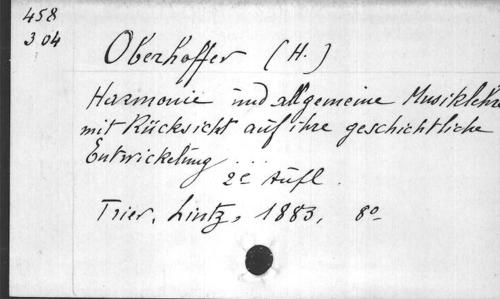 458
304
Oberhoffer (H.)
Harmonie und allgemeine Musiklehre
mit Rücksicht auf ihre geschichtliche
Entwickelung ...
2e Aufl.
Trier, Lintz, 1883, 8o